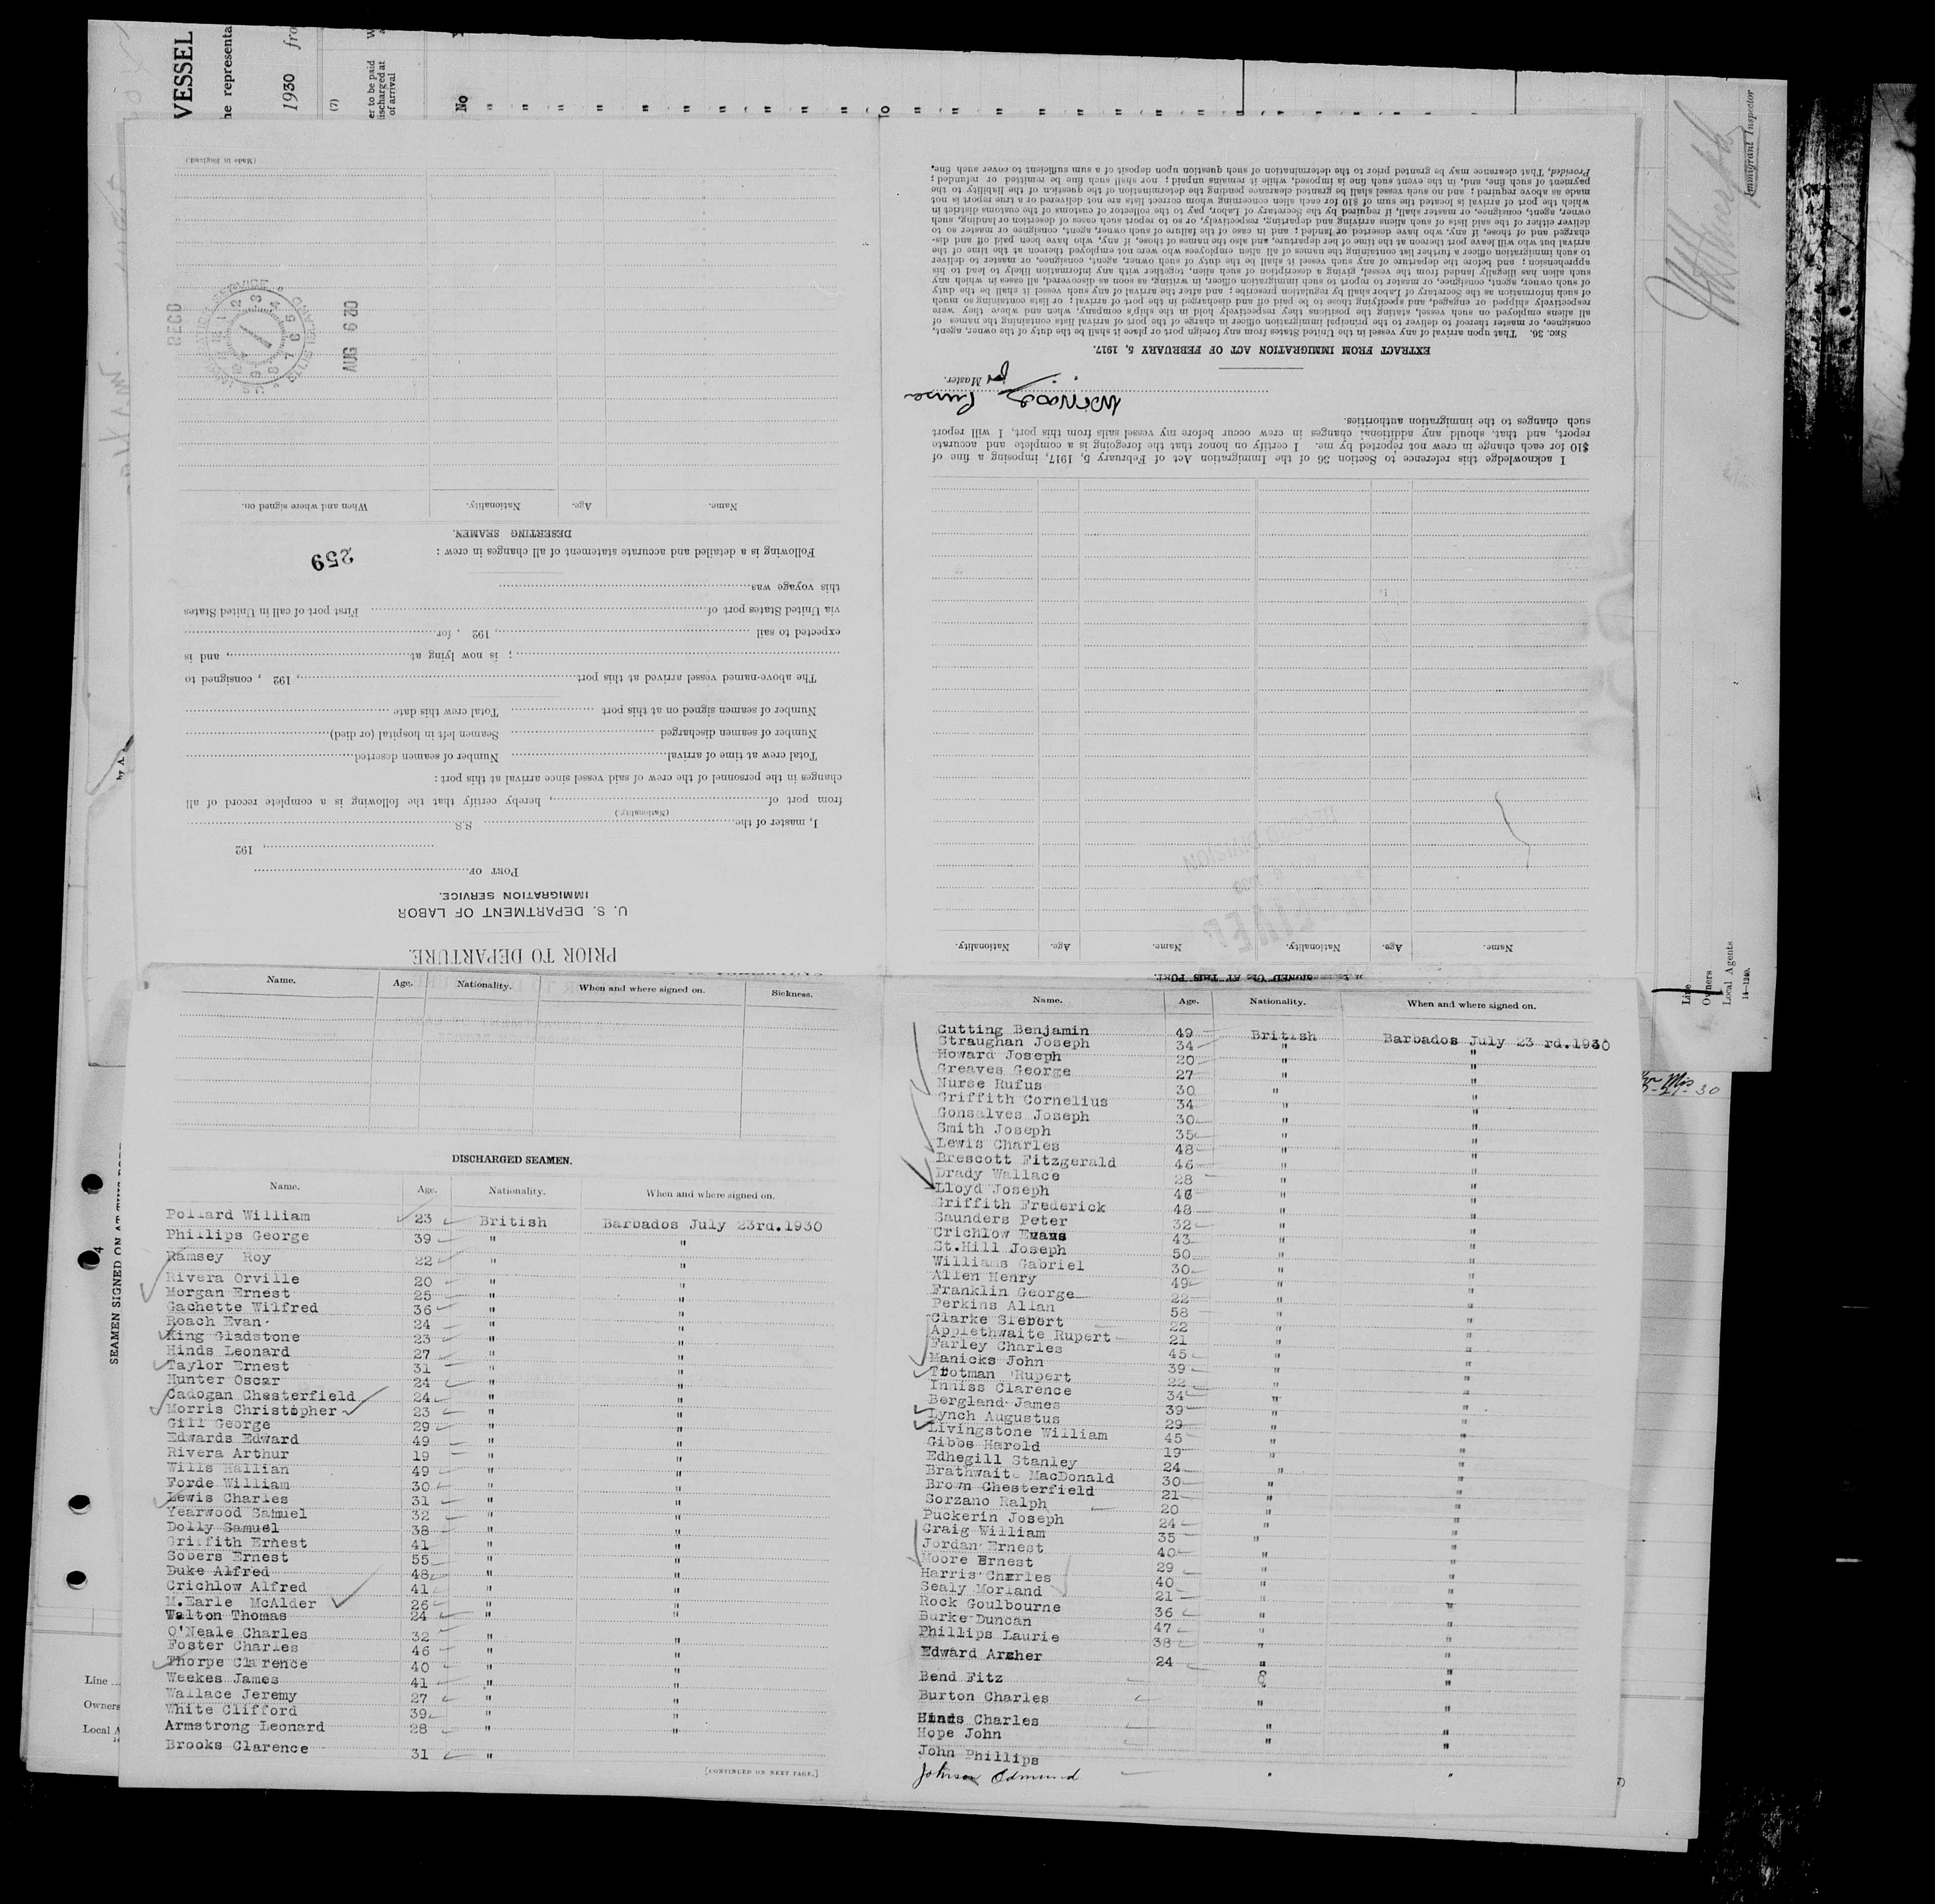 VESSEL
he representa
1930 fro
(7)
er to be paid
ischarged at
of arrival
No
Immigrant Inspector
(Made in England.)
RECD
AUG 6 30
When and where signed on. Nationality. Age. Name.
DESERTING SEAMEN.
Following is a detailed and accurate statement of all changes in crew :
259
this voyage was
via United States port of First port of call in United States
expected to sail , 192 , for
; is now lying at , and is
The above-named vessel arrived at this port , 192 , consigned to
Number of seamen signed on at this port Total crew this date
Number of seamen discharged Seamen left in hospital (or died)
Total crew at time of arrival Number of seamen deserted
changes in the personnel of the crew of said vessel since arrival at this port :
from port of , hereby certify that the following is a complete record of all
(Nationality)
I, master of the S.S.
, 192
PORT OF
IMMIGRATION SERVICE.
U. S. DEPARTMENT OF LABOR
PRIOR TO DEPARTURE.
Provided, That clearance may be granted prior to the determination of such question upon deposit of a sum sufficient to cover such fine.
payment of such fine, and, in the event such fine is imposed, while it remains unpaid ; nor shall such fine be remitted or refunded ;
made as above required ; and no such vessel shall be granted clearance pending the determination of the question of the liability to the
which the port of arrival is located the sum of $10 for each alien concerning whom correct lists are not delivered or a true report is not
owner, agent, consignee, or master shall, if required by the Secretary of Labor, pay to the collector of customs of the customs district in
deliver either of the said lists of such aliens arriving and departing, respectively, or so to report such cases of desertion or landing, such
charged and of those, if any, who have deserted or landed ; and in case of the failure of such owner, agent, consignee or master so to
arrival but who will leave port thereon at the time of her departure, and also the names of those, if any, who have been paid off and dis-
to such immigration officer a further list containing the names of all alien employees who were not employed thereon at the time of the
apprehension ; and before the departure of any such vessel it shall be the duty of such owner, agent, consignee, or master to deliver
such alien has illegally landed from the vessel, giving a description of such alien, together with any information likely to lead to his
of such owner, agent, consignee, or master to report to such immigration officer, in writing, as soon as discovered, all cases in which any
of such information as the Secretary of Labor shall by regulation prescribe ; and after the arrival of any such vessel it shall be the duty
respectively shipped or engaged, and specifying those to be paid off and discharged in the port of arrival ; or lists containing so much
all aliens employed on such vessel, stating the positions they respectively hold in the ship's company, when and where they were
consignee, or master thereof to deliver to the principal immigration officer in charge of the port of arrival lists containing the names of
SEC. 36. That upon arrival of any vessel in the United States from any foreign port or place it shall be the duty of the owner, agent,
EXTRACT FROM IMMIGRATION ACT OF FEBRUARY 5, 1917.
for Master.
such changes to the immigration authorities.
report, and that, should any additional changes in crew occur before my vessel sails from this port, I will report
$10 for each change in crew not reported by me. I certify on honor that the foregoing is a complete and accurate
I acknowledge this reference to Section 36 of the Immigration Act of February 5, 1917, imposing a fine of
RECORD DIVISION
RECEIVED
Nationality. Age. Name. Nationality. Age. Name.
SIGNED ON AT THIS PORT.
Line
Owners
Local Agents
14—1240.
SEAMEN SIGNED ON AT THIS PORT
Line
Owners
Local A
Name. Age. Nationality. When and where signed on. Sickness.
DISCHARGED SEAMEN.
Name. Age. Nationality. When and where signed on.
Pollard William 23 British Barbados July 23rd.1930
Phillips George 39 " "
Ramsey Roy 22 " "
Rivera Orville 20 " "
Morgan Ernest 25 " "
Gachette Wilfred 36 " "
Roach Evan 24 " "
King Gladstone 23 " "
Hinds Leonard 27 " "
Taylor Ernest 31 " "
Hunter Oscar 24 " "
Cadogan Chesterfield 24 " "
Morris Christopher 23 " "
Gill George 29 " "
Edwards Edward 49 " "
Rivera Arthur 19 " "
Wills Hallian 49 " "
Forde William 30 " "
Lewis Charles 31 " "
Yearwood Samuel 32 " "
Dolly Samuel 38 " "
Griffith Ernest 41 " "
Sobers Ernest 55 " "
Duke Alfred 48 " "
Crichlow Alfred 41 " "
M.Earle McAlder 26 " "
Walton Thomas 24 " "
O'Neale Charles 32 "
Foster Charles 46 " "
Thorpe Clarence 40 " "
Weekes James 41 " "
Wallace Jeremy 27 " "
White Clifford 39 " "
Armstrong Leonard 28 " "
Brooks Clarence 31 "
[CONTINUED ON NEXT PAGE.]
Name. Age. Nationality. When and where signed on.
Cutting Benjamin 49 British Barbados July 23 rd.1930
Straughan Joseph 34 " "
Howard Joseph 20 " "
Greaves George 27 " "
Nurse Rufus 30 " "
Griffith Cornelius 34 " "
Gonsalves Joseph 30 " "
Smith Joseph 35 " "
Lewis Charles 48 " "
Brescott Fitzgerald 46 " "
Drady Wallace 28 " "
Lloyd Joseph 46 " "
Griffith Frederick 48 " "
Saunders Peter 32 " "
Crichlow Evans 43 " "
St.Hill Joseph 50 " "
Williams Gabriel 30 " "
Allen Henry 49 " "
Franklin George 22 " "
Perkins Allan 58 " "
Clarke Siebert 22 " "
Applethwaite Rupert 21 " "
Farley Charles 45 " "
Manicks John 39 " "
Trotman Rupert 22 " "
Inniss Clarence 34 " "
Bergland James 39 " "
Lynch Augustus 29 " "
Livingstone William 45 " "
Gibbs Harold 19 " "
Edhegill Stanley 24 " "
Brathwaite MacDonald 30 " "
Brown Chesterfield 21 " "
Sorzano Ralph 20 " "
Puckerin Joseph 24 " "
Craig William 35 " "
Jordan Ernest 40 " "
Moore Ernest 29 " "
Harris Charles 40 " "
Sealy Morland 21 " "
Rock Goulbourne 36 " "
Burke Duncan 47 " "
Phillips Laurie 38 " "
Edward Archer 24 " "
Bend Fitz "
Burton Charles " "
Hinds Charles
Hope John " "
John Phillips " "
Johnson Edmund " "